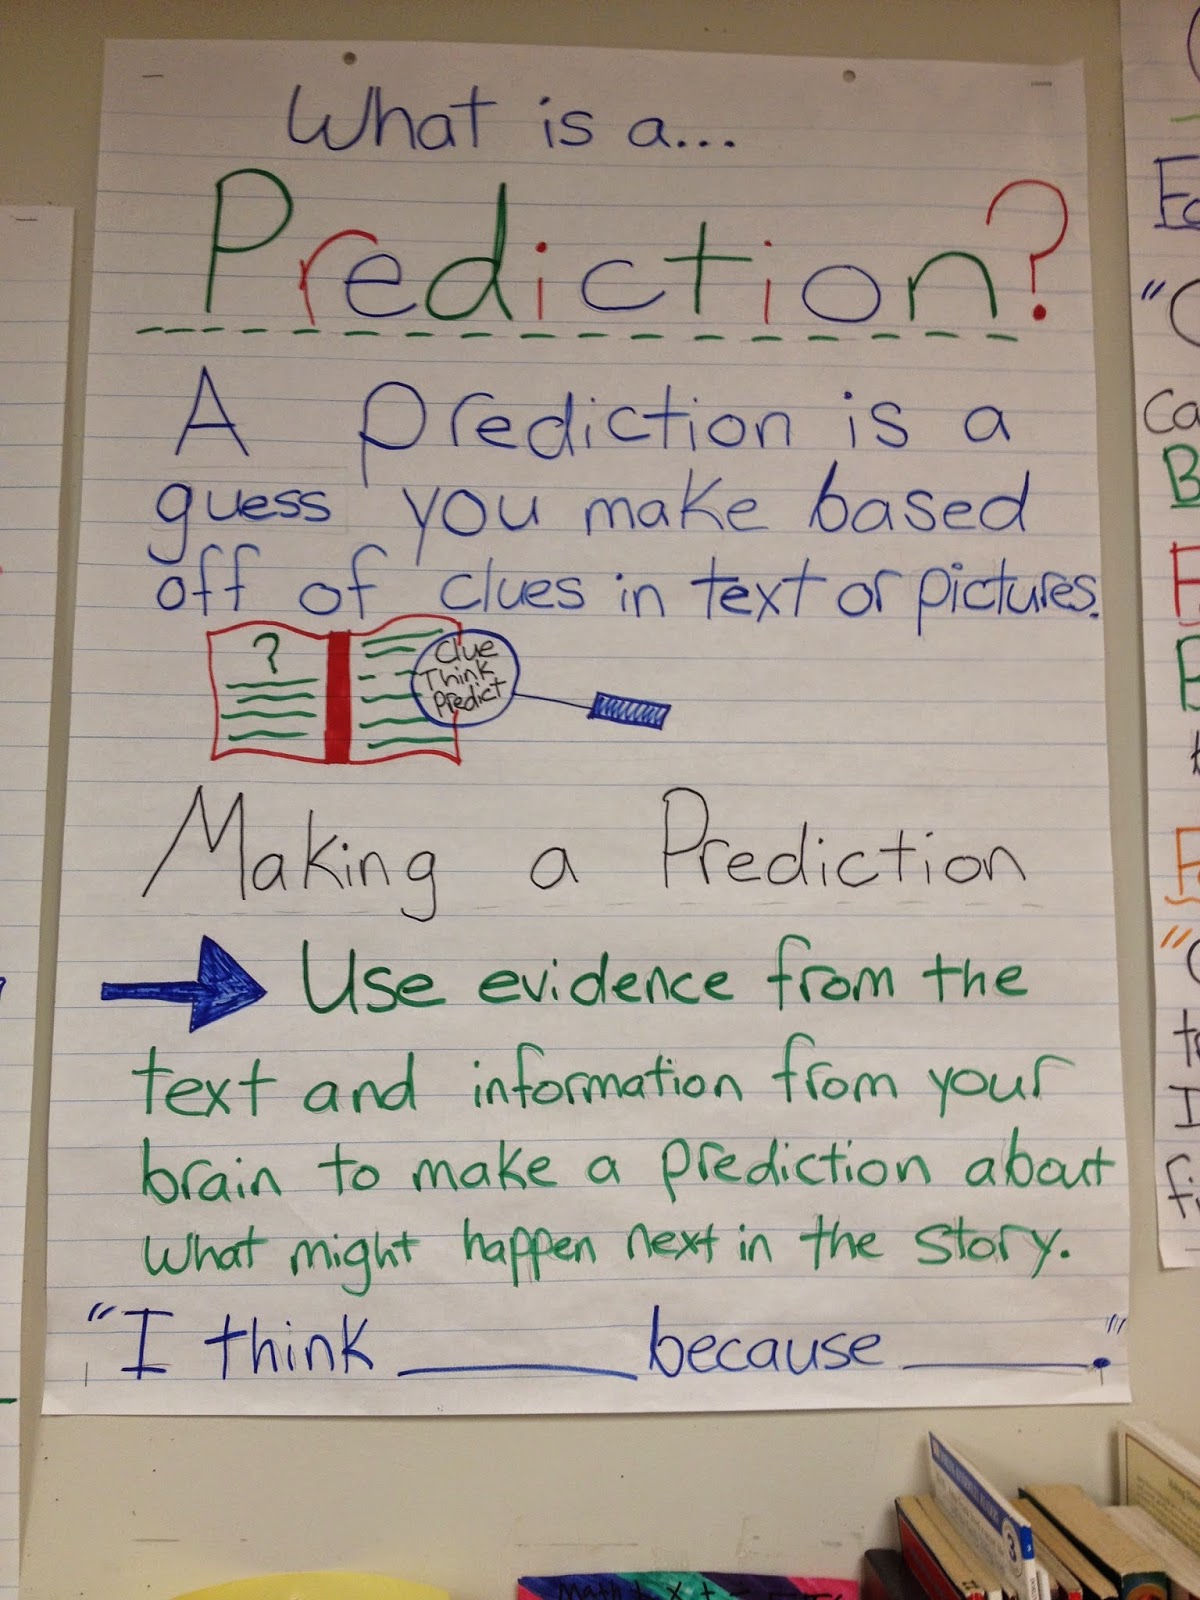 What is a...
Prediction?
A prediction is a
guess you make based
off of clues in text or pictures.
?
Clue
Think
Predict
Making a Prediction
Use evidence from the
text and information from your
brain to make a prediction about
what might happen next in the story.
"I think ________ because ________."
Math + x + -